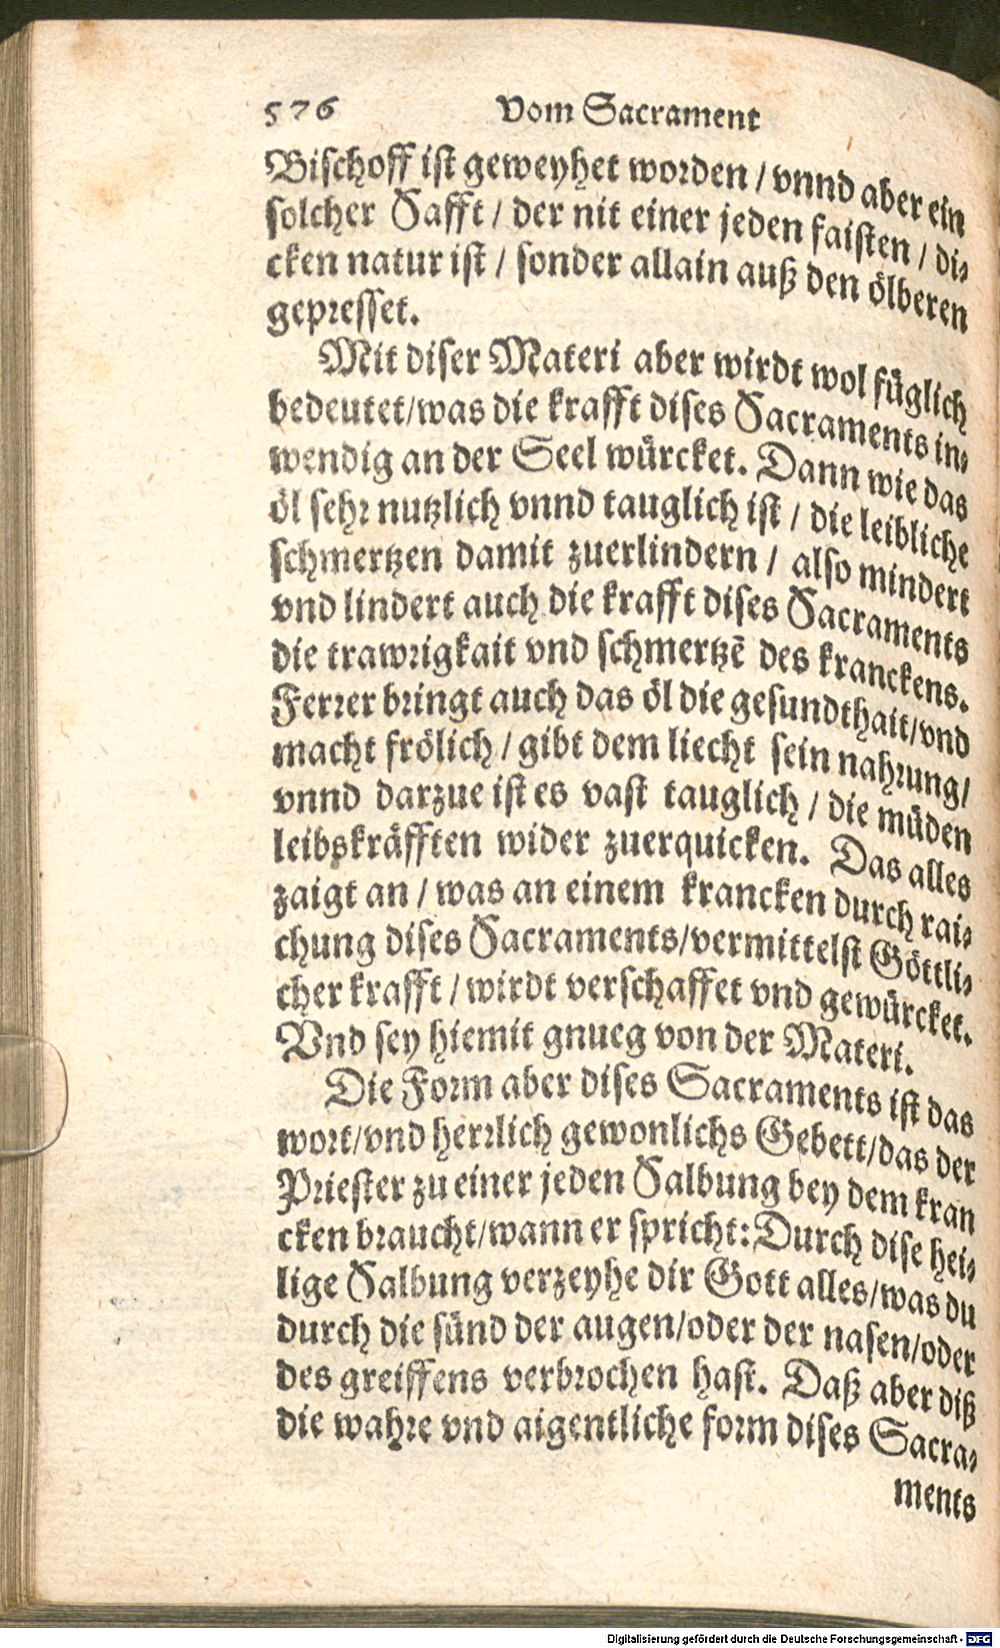 576 Vom Sacrament
Bischoff ist geweyhet worden / vnnd aber ein
solcher Safft / der nit einer jeden faisten / di-
cken natur ist / sonder allain auß den ölberen
gepresset.
Mit diser Materi aber wirdt wol füglich
bedeutet/was die krafft dises Sacraments in-
wendig an der Seel würcket. Dann wie das
öl sehr nutzlich vnnd tauglich ist / die leibliche
schmertzen damit zuerlindern / also mindert
vnd lindert auch die krafft dises Sacraments
die trawrigkait vnd schmertzē des kranckens.
Ferrer bringt auch das öl die gesundthait/vnd
macht frölich / gibt dem liecht sein nahrung/
vnnd darzue ist es vast tauglich / die müden
leibskräfften wider zuerquicken. Das alles
zaigt an / was an einem krancken durch rai-
chung dises Sacraments/vermittelst Göttli-
cher krafft / wirdt verschaffet vnd gewürcket.
Vnd sey hiemit gnueg von der Materi.
Die Form aber dises Sacraments ist das
wort/vnd herrlich gewonlichs Gebett/das der
Priester zu einer jeden Salbung bey dem kran
cken braucht/wann er spricht: Durch dise hei-
lige Salbung verzeyhe dir Gott alles/was du
durch die sünd der augen/oder der nasen/oder
des greiffens verbrochen hast. Daß aber diß
die wahre vnd aigentliche form dises Sacra-
ments
Digitalisierung gefördert durch die Deutsche Forschungsgemeinschaft - DFG